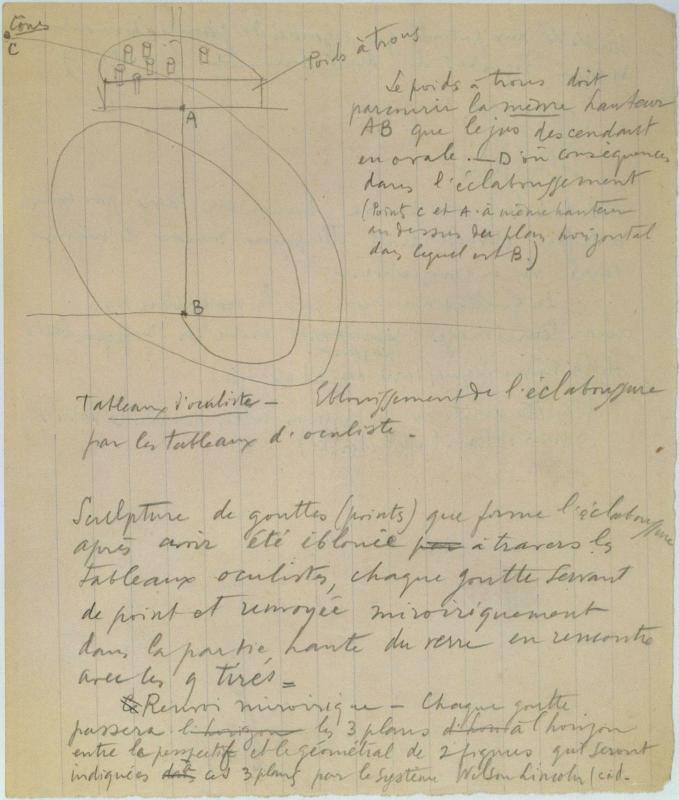 Cônes
C
Poids à trous
A
B
Le poids à trous doit
parcourir la même hauteur
AB que le jus descendant
en ovale. — D'où conséquences
dans l'éclaboussement
(Points C et A à même hauteur
au dessus du plan horizontal
dans lequel est B.)
Tableaux d'oculiste — Eblouissement de l'éclaboussure
par les tableaux d'oculiste.
Sculpture de gouttes (points) que forme l'éclaboussure
après avoir été éblouie par à travers les
tableaux oculistes, chaque goutte servant
de point et renvoyée miroiriquement
dans la partie haute du verre en rencontre
avec les 9 tirés =
Renvoi miroirique — Chaque goutte
passera l'horizon les 3 plans à l'horizon
entre le perspectif et le géométral de 2 figures qui seront
indiquées à ces 3 plans par le système Wilson Lincoln (càd.